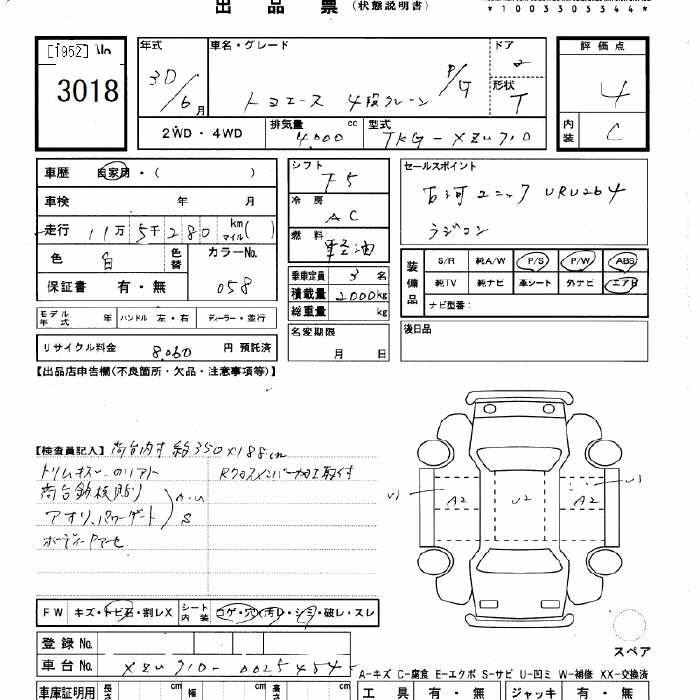 出品票(状態説明書)
*1003305344*
[1952]
3018
年式 30/6月
車名・グレード トヨエース 4段クレーン P/G
ドア 2
形状 T
評価点 4
内装 C
2WD・4WD
排気量 4,000 cc
型式 TKG-XZU710
車歴 自家用・( )
車検 年 月
走行 11万5千280 km マイル( )
色 白 色替
カラーNo. 058
保証書 有・無
モデル年式 年 ハンドル 左・右 ディーラー・並行
リサイクル料金 8,060 円 預託済
シフト F5
冷房 AC
燃料 軽油
乗車定員 3名
積載量 2000kg
総重量 kg
名変期限 月 日
セールスポイント
古河ユニック URU264
ラジコン
装備品
S/R 純A/W P/S P/W ABS
純TV 純ナビ 革シート 外ナビ エアB
ナビ型番:
後日品
【出品店申告欄(不良箇所・欠品・注意事項等)】
【検査員記入】荷台内寸 約350×188cm
荷台鉄板貼り
アオリ、パワーゲート
A.U
S
U1
A2
U2
A2
U1
スペア
FW キズ・トビ石・割レX
シート内装 コゲ・穴・汚レ・シミ・破レ・スレ
登録No.
車台No. XZU710-0025454
A-キズ C-腐食 E-エクボ S-サビ U-凹ミ W-補修 XX-交換済
車庫証明用 長さ cm 幅 cm 高さ cm
工具 有・無 ジャッキ 有・無